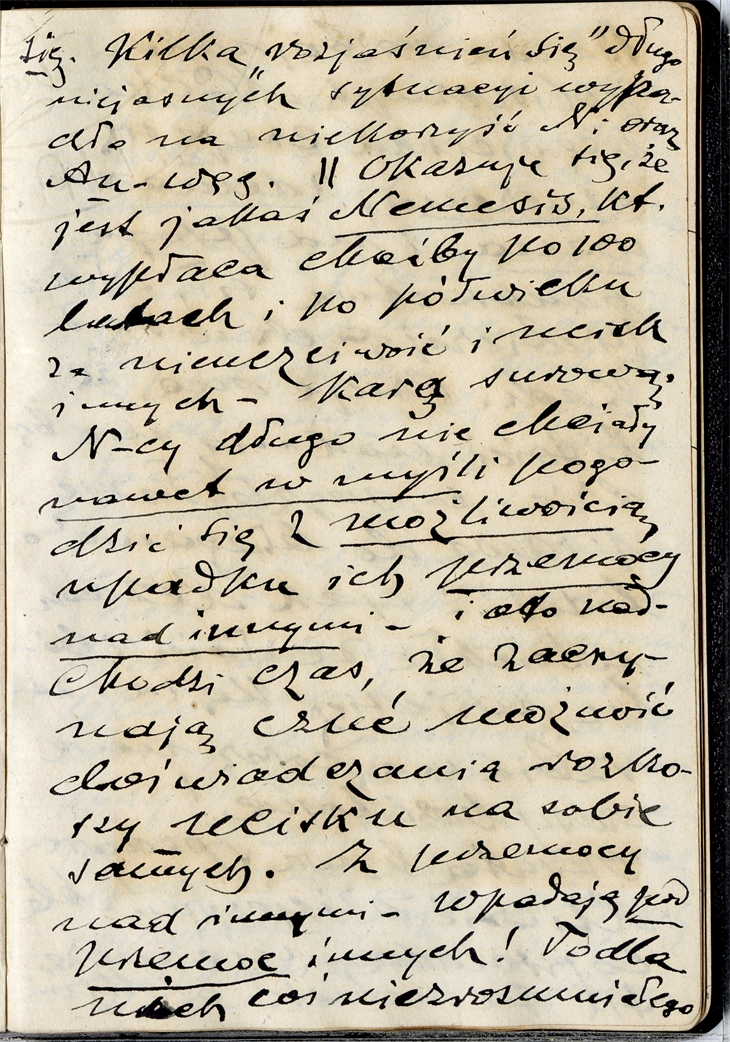 się. Kilka „rozjaśnień się” długo
niejasnych sytuacyi wypa-
dło na niekorzyść N. oraz
Au-węg. || Okazuje się, że
jest jakaś Nemesis, kt.
wypłaca choćby po 100
latach i po półwieku
za nieuczciwość i ucisk
innych - karą surową.
N-cy długo nie chciały
nawet w myśli pogo-
dzić się z możliwością
upadku ich przemocy
nad innymi - i oto nad-
chodzi czas, że zaczy-
nają czuć możność
doświadczania rozko-
szy ucisku na sobie
samych. Z przemocy
nad innymi - wpadają pod
przemoc innych! To dla
nich coś niezrozumiałego